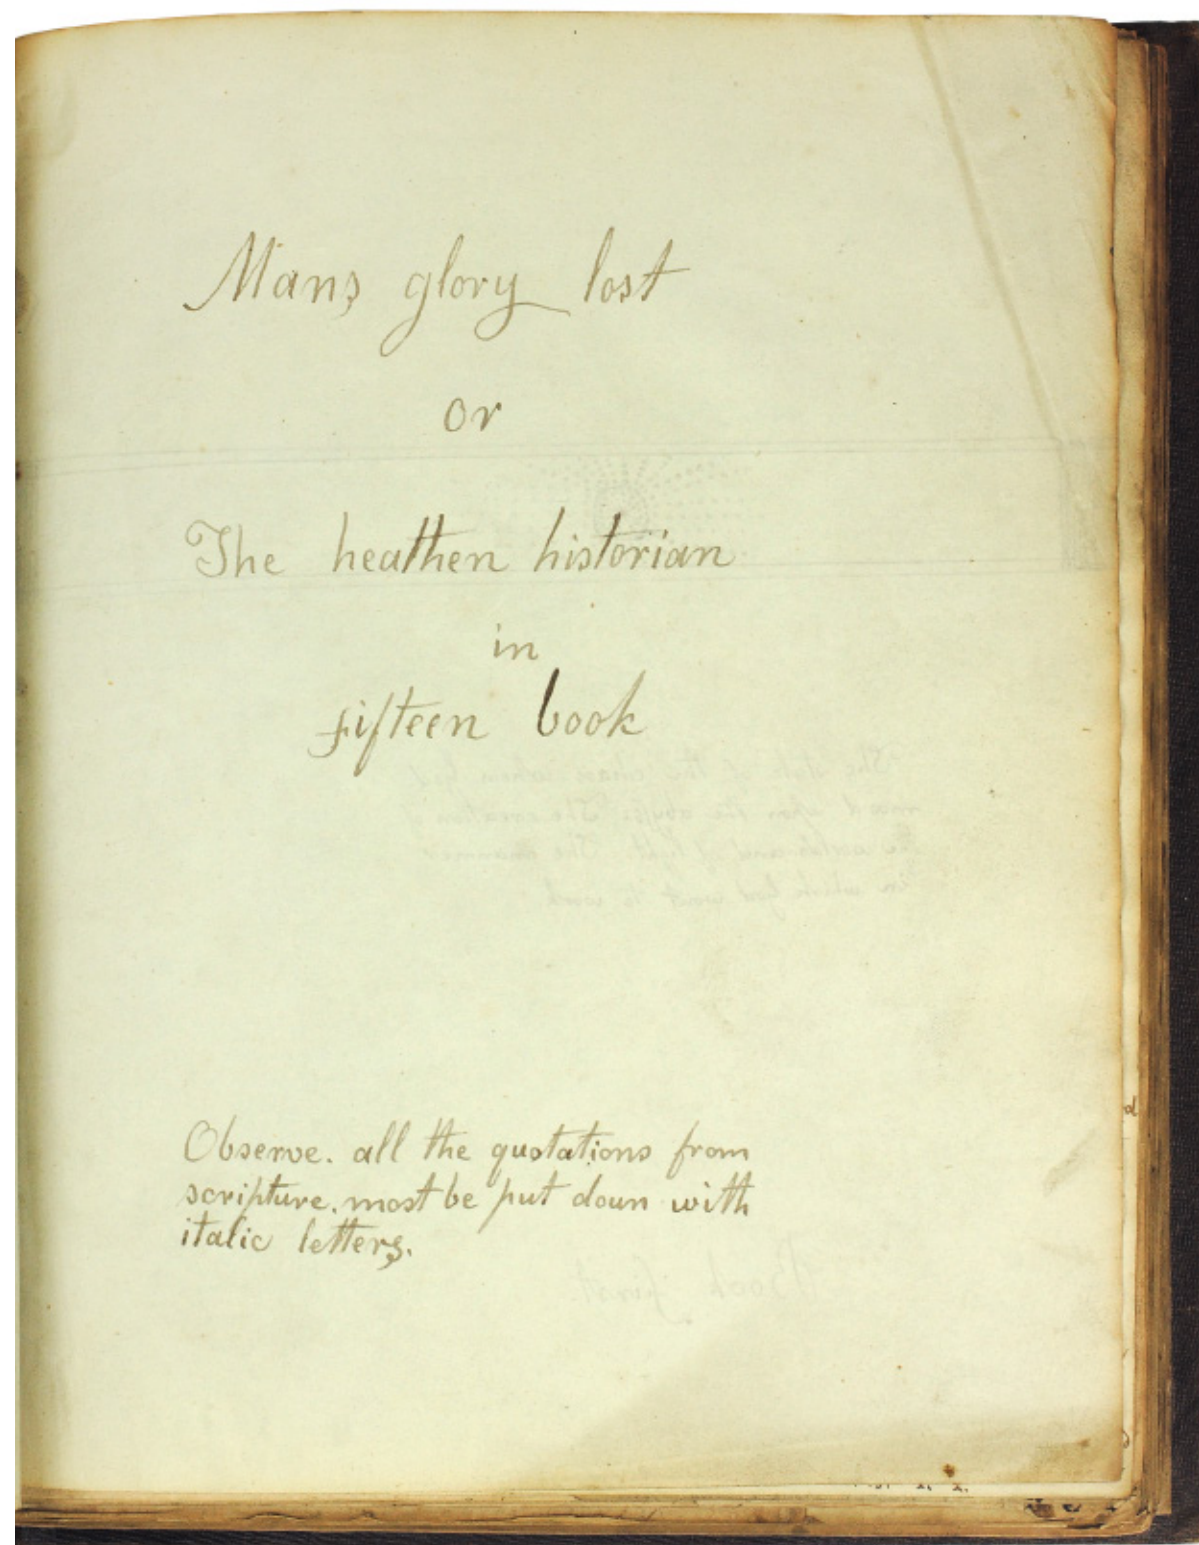 Mans glory lost
or
The heathen historian
in
fifteen book
Observe. all the quotations from
scripture. most be put down with
italic letters.